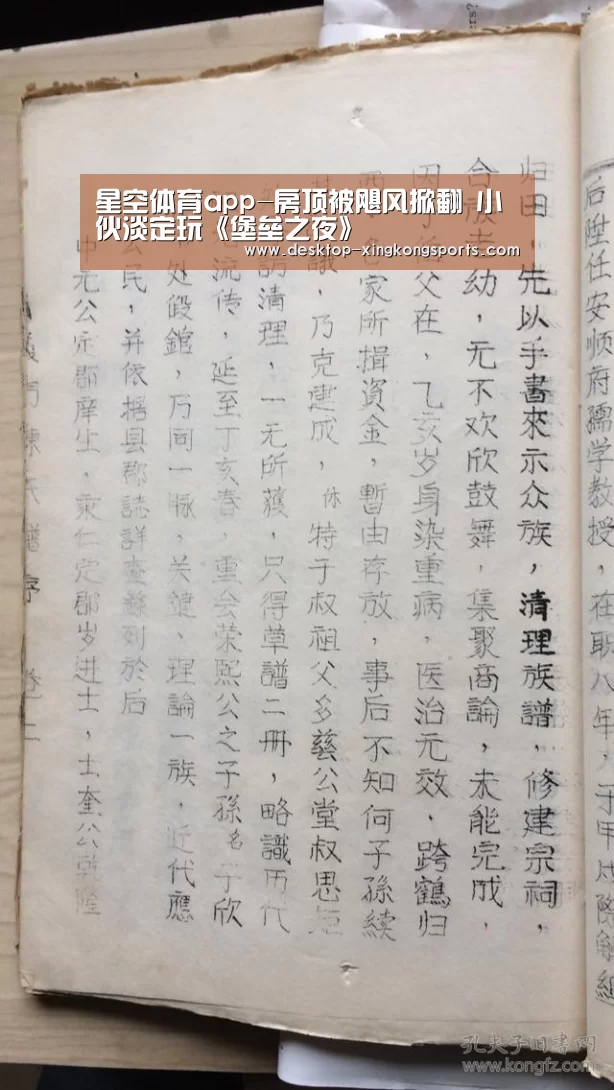 星空体育app-房顶被飓风掀翻 小
伙淡定玩《堡垒之夜》
www.desktop-xingkongsports.com
后陞任安顺府孺学教授，在职八年，于甲戌
归田，先以手書來示众族，清理族譜，修建宗祠，
合族老幼，无不欢欣鼓舞，集聚商論，未能完成，
父在，乙亥岁身染重病，医治无效，跨鶴归
西，家所揖資金，暫由存放，事后不知何子孫續
議，乃克建成，休特于叔祖父多慈公堂叔思
訪清理，一无所獲，只得草譜二册，略識历代
流传，延至丁亥春，重会荣熙公之子孫名于欣
处叚館，乃同一脈，关鍵、理論一族，近代應
公民，并依据县郡誌詳查錄列於后
中元公定郡庠生，秉仁定郡岁进士，士奎公乾隆
陳氏譜序 卷二
孔夫子旧书网
www.kongfz.com